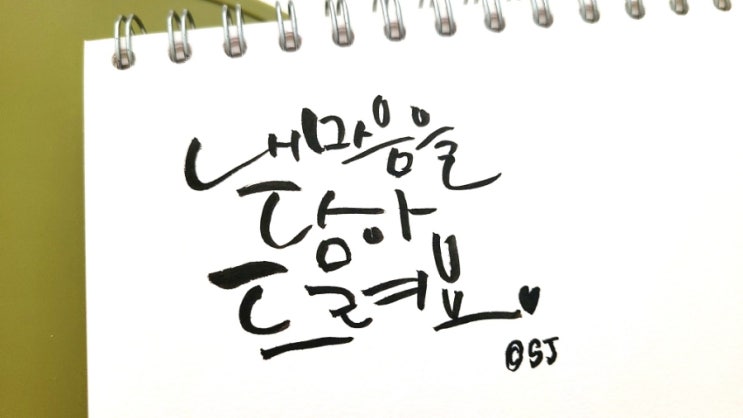 내마음을
담아
드려요♥
@SJ